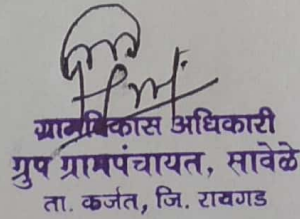 ग्रामविकास अधिकारी
ग्रुप ग्रामपंचायत, सावेळे
ता. कर्जत, जि. रायगड